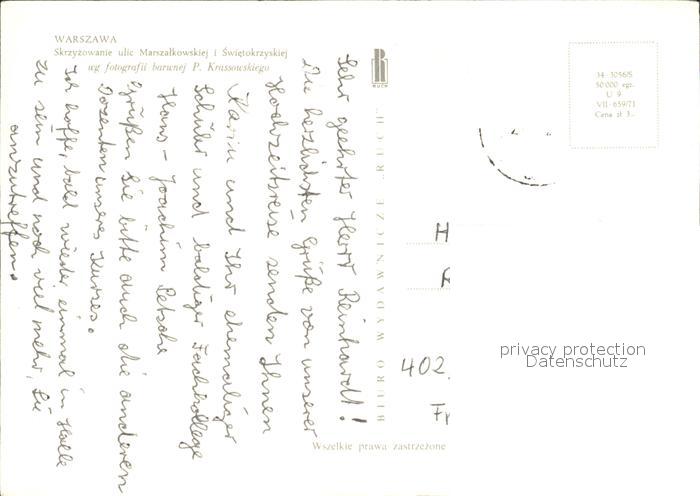 WARSZAWA
Skrzyżowanie ulic Marszałkowskiej i Świętokrzyskiej
wg fotografii barwnej P. Krassowskiego
Sehr geehrter Herr Reinhardt!
Die herzlichsten Grüße von unserer
Hochzeitsreise senden Ihnen
Karin und Ihr ehemaliger
Schüler und baldiger Fachkollege
Hans-Joachim Letsche
Grüßen Sie bitte auch die anderen
Dozenten unseres Kurses.
Ich hoffe, bald wieder einmal in Halle
zu sein und noch viel mehr, Sie
anzutreffen.
RUCH
BIURO WYDAWNICZE „RUCH"
34-3056/S
50 000 egz.
U 9
VII-659/71
Cena zł 3,-
H
402.
Fr
Wszelkie prawa zastrzeżone
privacy protection
Datenschutz